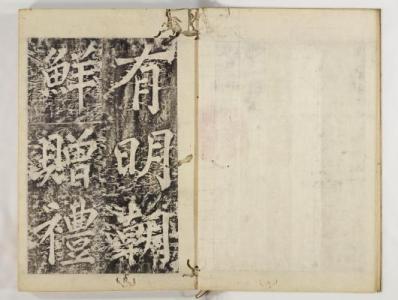 有明朝
鮮贈禮